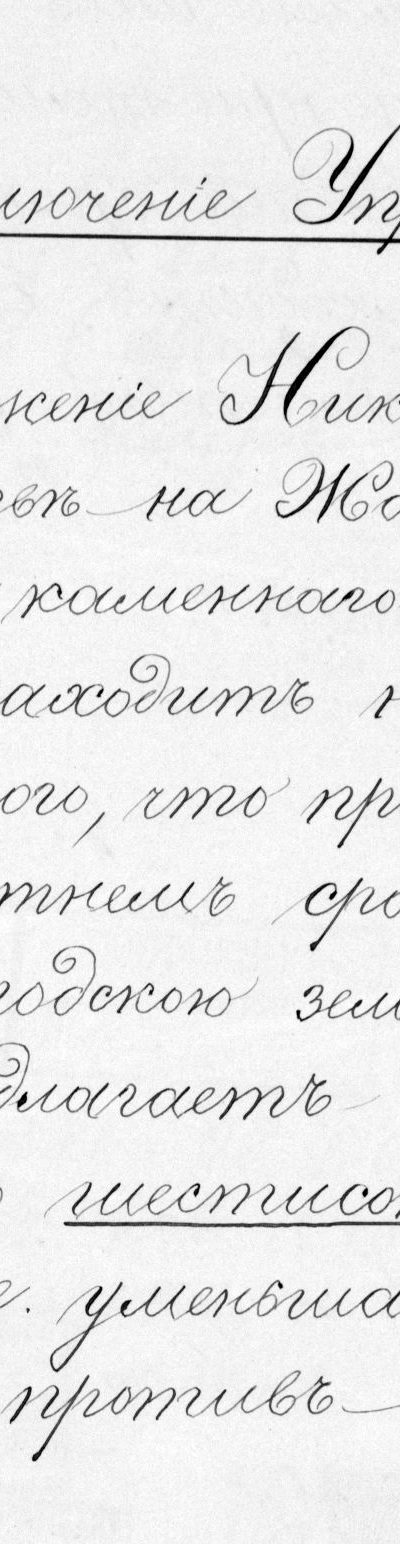 лючение Упр
жение Ник
евъ на Жа
каменнаго
аходитъ н
ого, что пр
тнемъ сро
годскою зем
длагаетъ
шестисо
е. уменьша
противъ